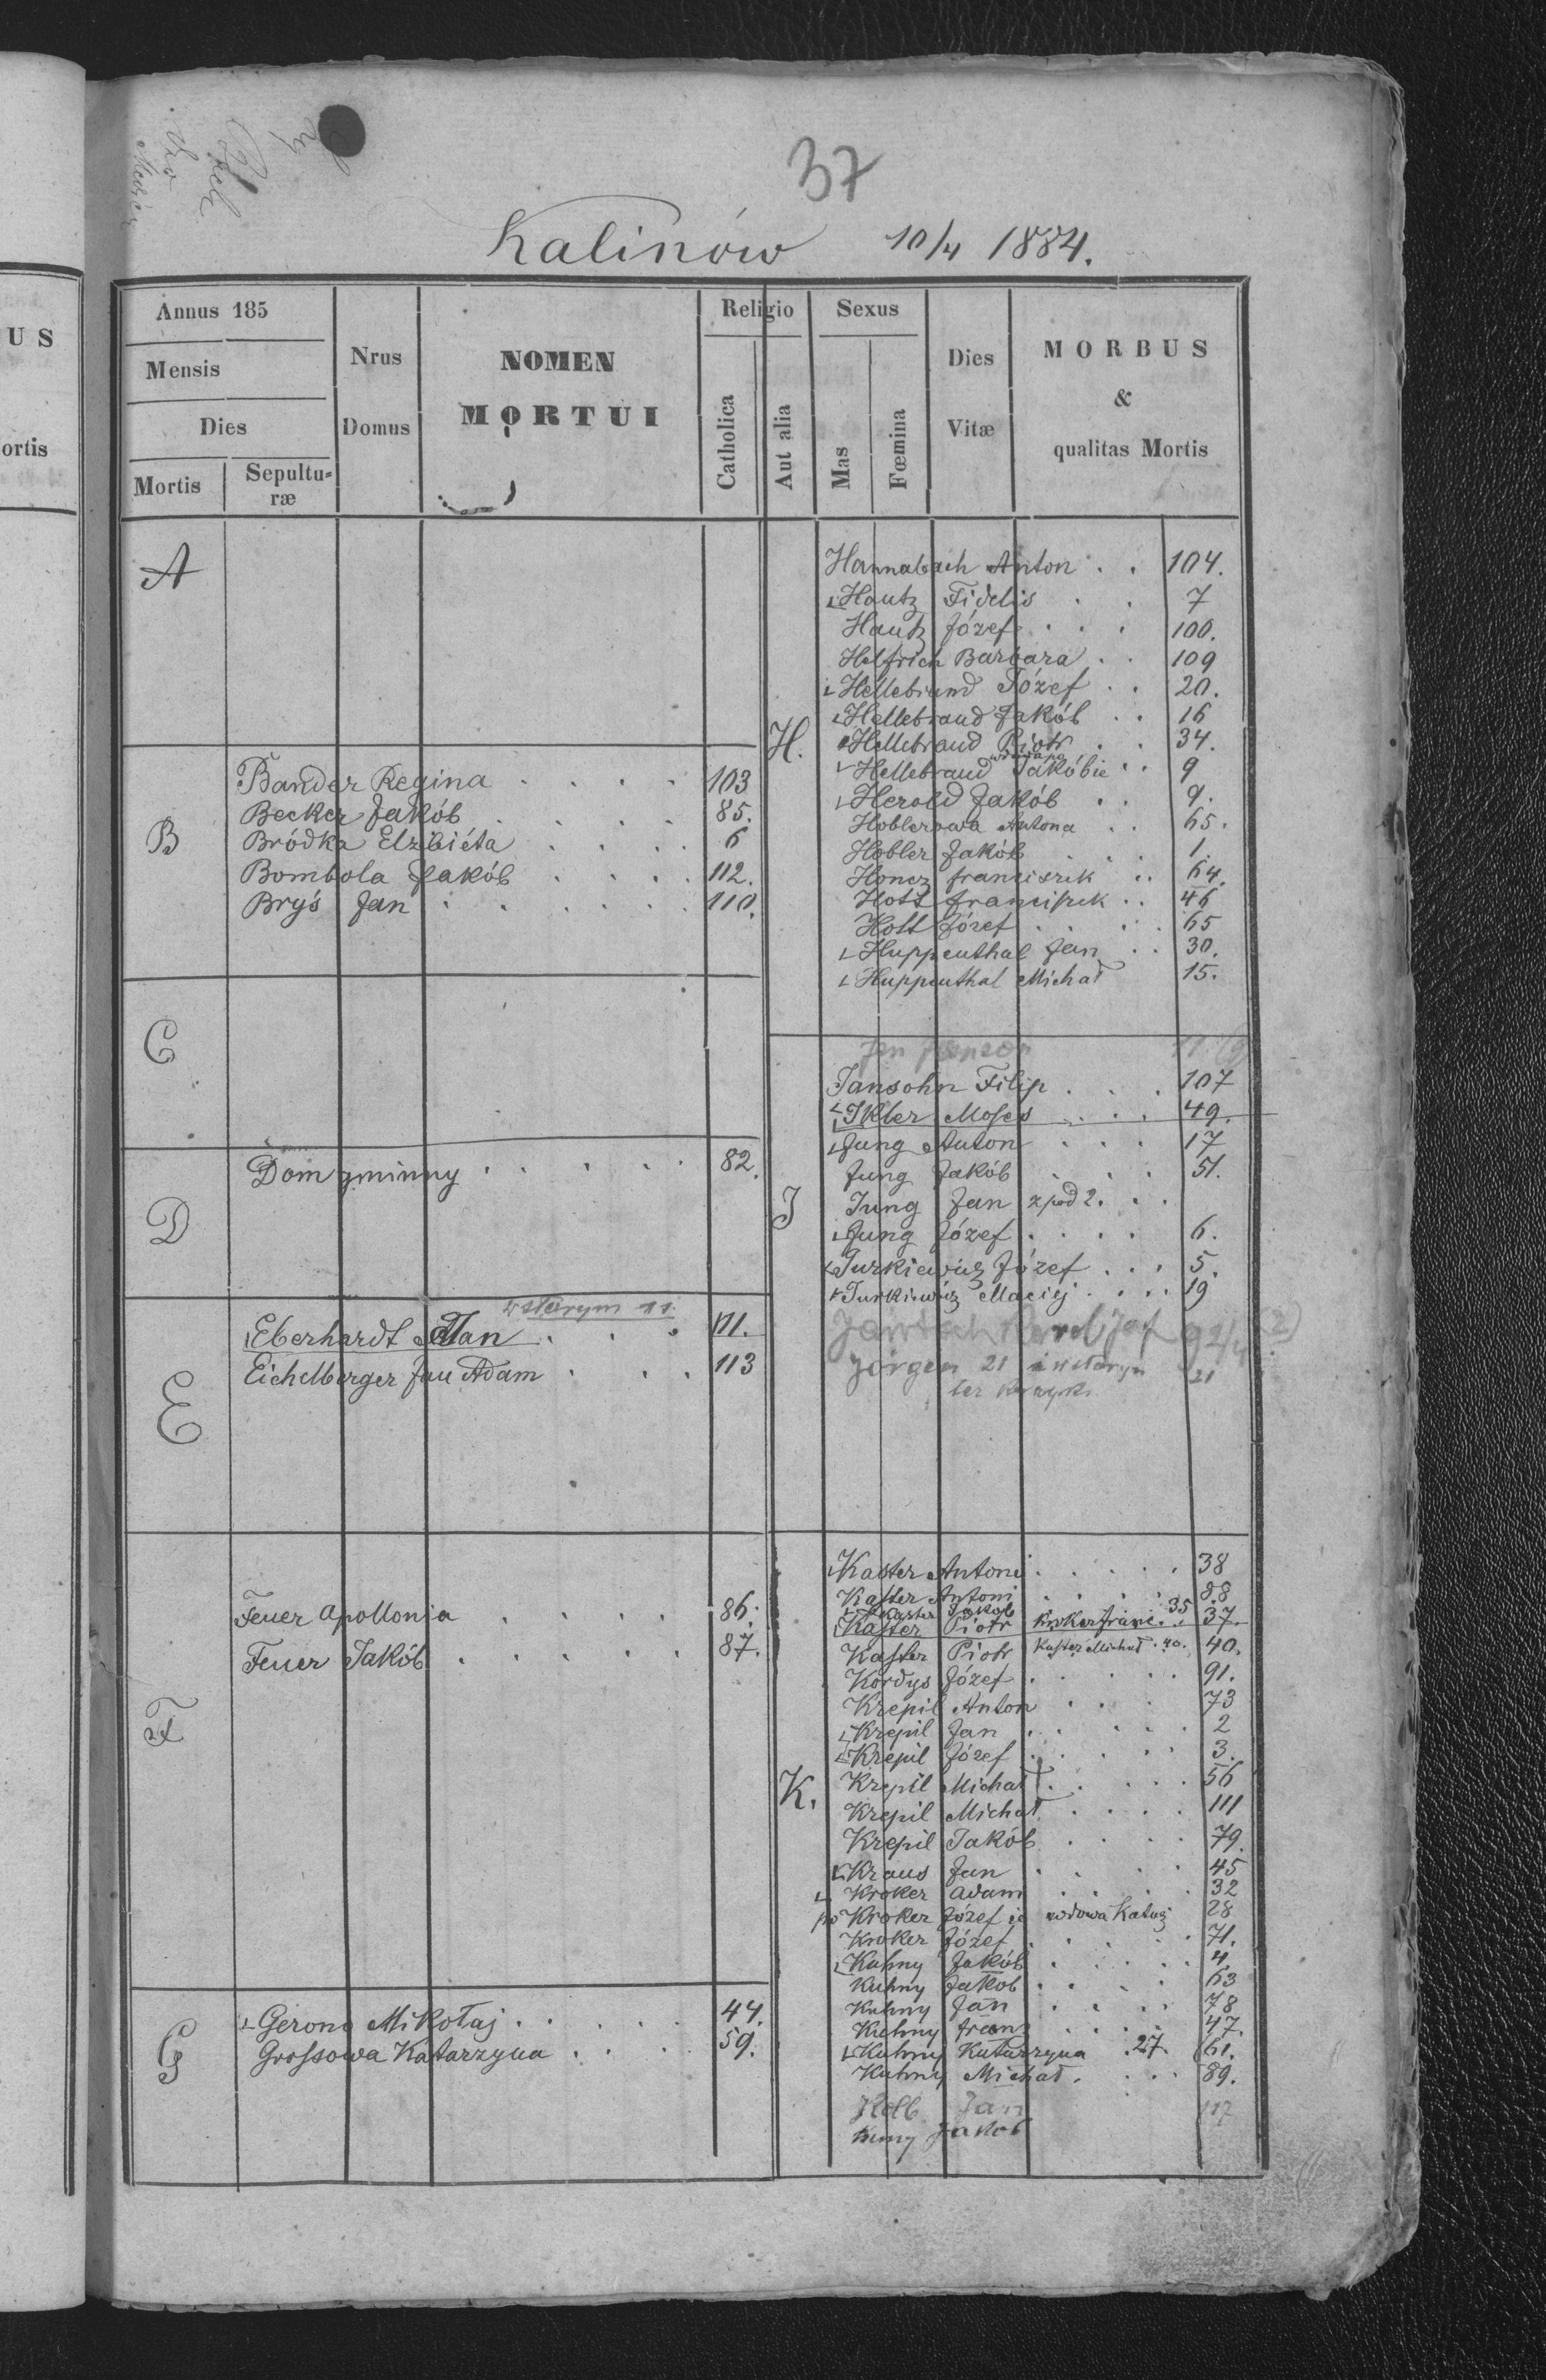 37
Kalinów 10/4 1884.
US
ortis
Annus 185
Mensis
Dies
Mortis
Sepultu-
ræ
Nrus
Domus
NOMEN
MORTUI
Religio
Catholica
Aut alia
Sexus
Mas
Fœmina
Dies
Vitæ
MORBUS
&
qualitas Mortis
A
B
Bander Regina 103
Becker Jakób 85.
Bródka Elżbiéta 6
Bombola Jakób 112.
Bryś Jan 110.
C
D
Dom gminny 82.
E
w starym 11.
Eberhardt Jan 111.
Eichelberger Jan Adam 113
F
Feuer Apollonia 86.
Feuer Jakób 87.
G
Gerono Mikołaj 44.
Grossowa Katarzyna 59.
H.
Hannabach Anton 104.
Hautz Fidelis 7
Hautz Józef 100.
Helfrich Barbara 109
Hellebrand Józef 20.
Hellebrand Jakób 16
Hellebrand Piotr 34.
Hellebrand Jakóbie 9
Herold Jakób 9.
Hoblerowa Antona 65.
Hobler Jakób 1.
Honcz franciszek 64.
Hott franciszek 46
Hott Józef 65
Huppenthal Jan 30.
Huppenthal Michał 15.
J
Jansohn Filip 107
Ikler Moses 49.
Jung Anton 17
Jung Jakób 51.
Jung Jan z pod 2.
Jung Józef 6.
Jurkiewicz Józef 5.
Jurkiewicz Maciej 19
Jorgen 21 w starym 21
K.
Kaster Antoni 38
Kaster Antoni 88
Kaster Jakob 35
Kaster Piotr Kroker franc. 37.
Kaster Piotr Kaster Michał 40. 40.
Kordys Józef 91.
Krepil Anton 73
Krepil Jan 2
Krepil Józef 3.
Krepil Michał 56
Krepil Michał 111
Krepil Jakób 79.
Kraus Jan 45
Kroker Adam 32
po Kroker Józef ie wdowa 28
Kroker Józef 71.
Kuhny Jakób 4
Kuhny Jakob 63
Kuhny Jan 78
Kuhny franz 47.
Kuhny Katarzyna 27 61.
Kuhny Michał 89.
Kolb Jan 117
Kuny Jakob